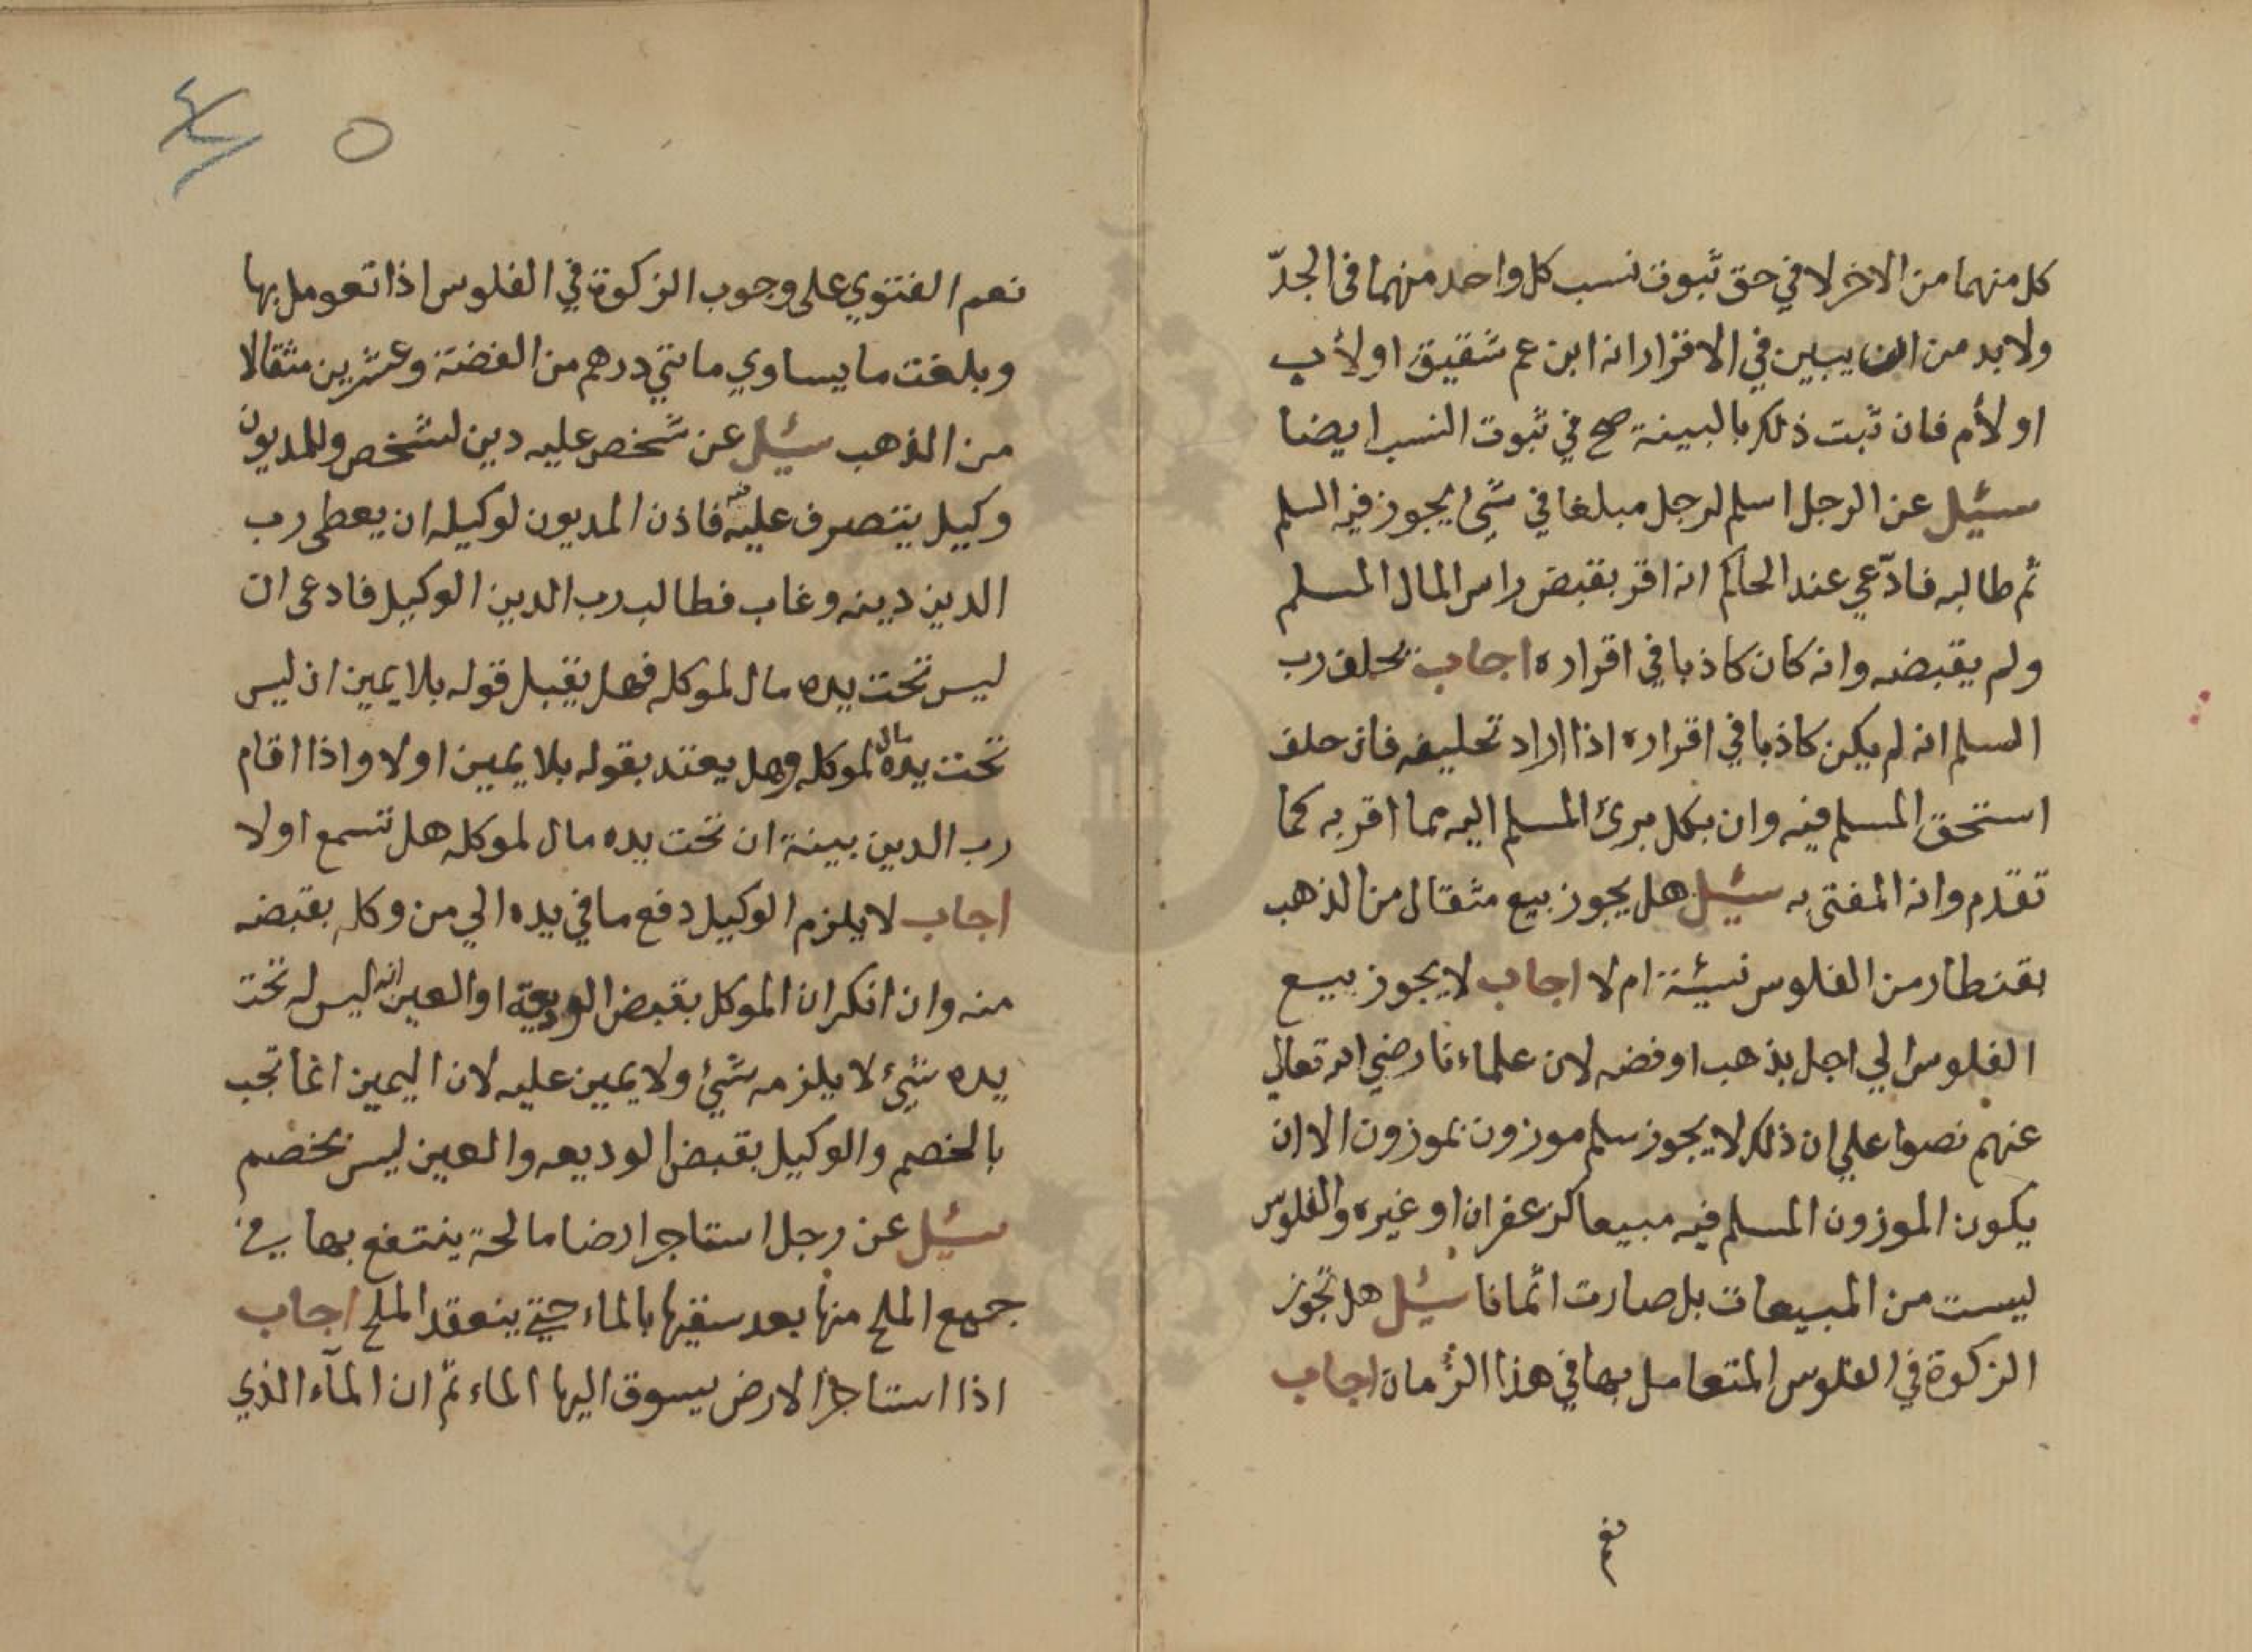 كل منهما من الاخر لا في حق ثبوت نسب كل واحد منهما في الجدّ
ولا بد من ان يبين في الاقرار انه ابن عم شقيق او لأب
او لأم فان ثبت ذلك بالبينة صح في ثبوت النسب ايضا
سئيل عن الرجل اسلم لرجل مبلغا في شئ يجوز فيه السلم
ثم طالبه فادّعي عند الحاكم انه اقر بقبض راس المال المسلم
ولم يقبضه وانه كان كاذبا في اقراره اجاب يحلف رب
السلم انه لم يكن كاذبا في اقراره اذا اراد تحليفه فان حلف
استحق المسلم فيه وان نكل برئ المسلم اليه مما اقر به كما
تقدم وانه المفتى به سئيل هل يجوز بيع مثقال من الذهب
بقنطار من الفلوس نسيئة ام لا اجاب لا يجوز بيع
الفلوس الي اجل بذهب او فضه لان علماءنا رضي الله تعالي
عنهم نصوا علي ان ذلك لا يجوز سلم موزون بموزون الا ان
يكون الموزون المسلم فيه مبيعا كزعفران او غيره والفلوس
ليست من المبيعات بل صارت اثمانا سئيل هل تجوز
الزكوة في الفلوس المتعامل بها في هذا الزمان اجاب
نعم
٥
نعم الفتوي على وجوب الزكوة في الفلوس اذا تعومل بها
وبلغت ما يساوي مائتي درهم من الفضة وعشرين مثقالا
من الذهب سئيل عن شخص عليه دين لشخص وللمديون
وكيل يتصرف عليه فيه فاذن المديون لوكيله ان يعطى رب
الدين دينه وغاب فطالب رب الدين الوكيل فادعى ان
ليس تحت يده مال لموكله فهل يقبل قوله بلا يمين ان ليس
تحت يده مال لموكله وهل يعتد بقوله بلا يمين او لا واذا اقام
رب الدين بينة ان تحت يده مال لموكله هل تسمع او لا
اجاب لا يلزم الوكيل دفع ما في يده الي من وكله بقبضه
منه وان انكر ان الموكل بقبض الوديعة او العين انه ليس له تحت
يده شئ لا يلزمه شئ ولا يمين عليه لان اليمين انما تجب
بالخصم والوكيل بقبض الوديعه والعين ليس بخصم
سئيل عن رجل استاجر ارضا مالحة ينتفع بها في
جميع الملح منها بعد سقيها بالماء حتي ينعقد الملح اجاب
اذا استاجر الارض يسوق اليها الماء ثم ان المآء الذي